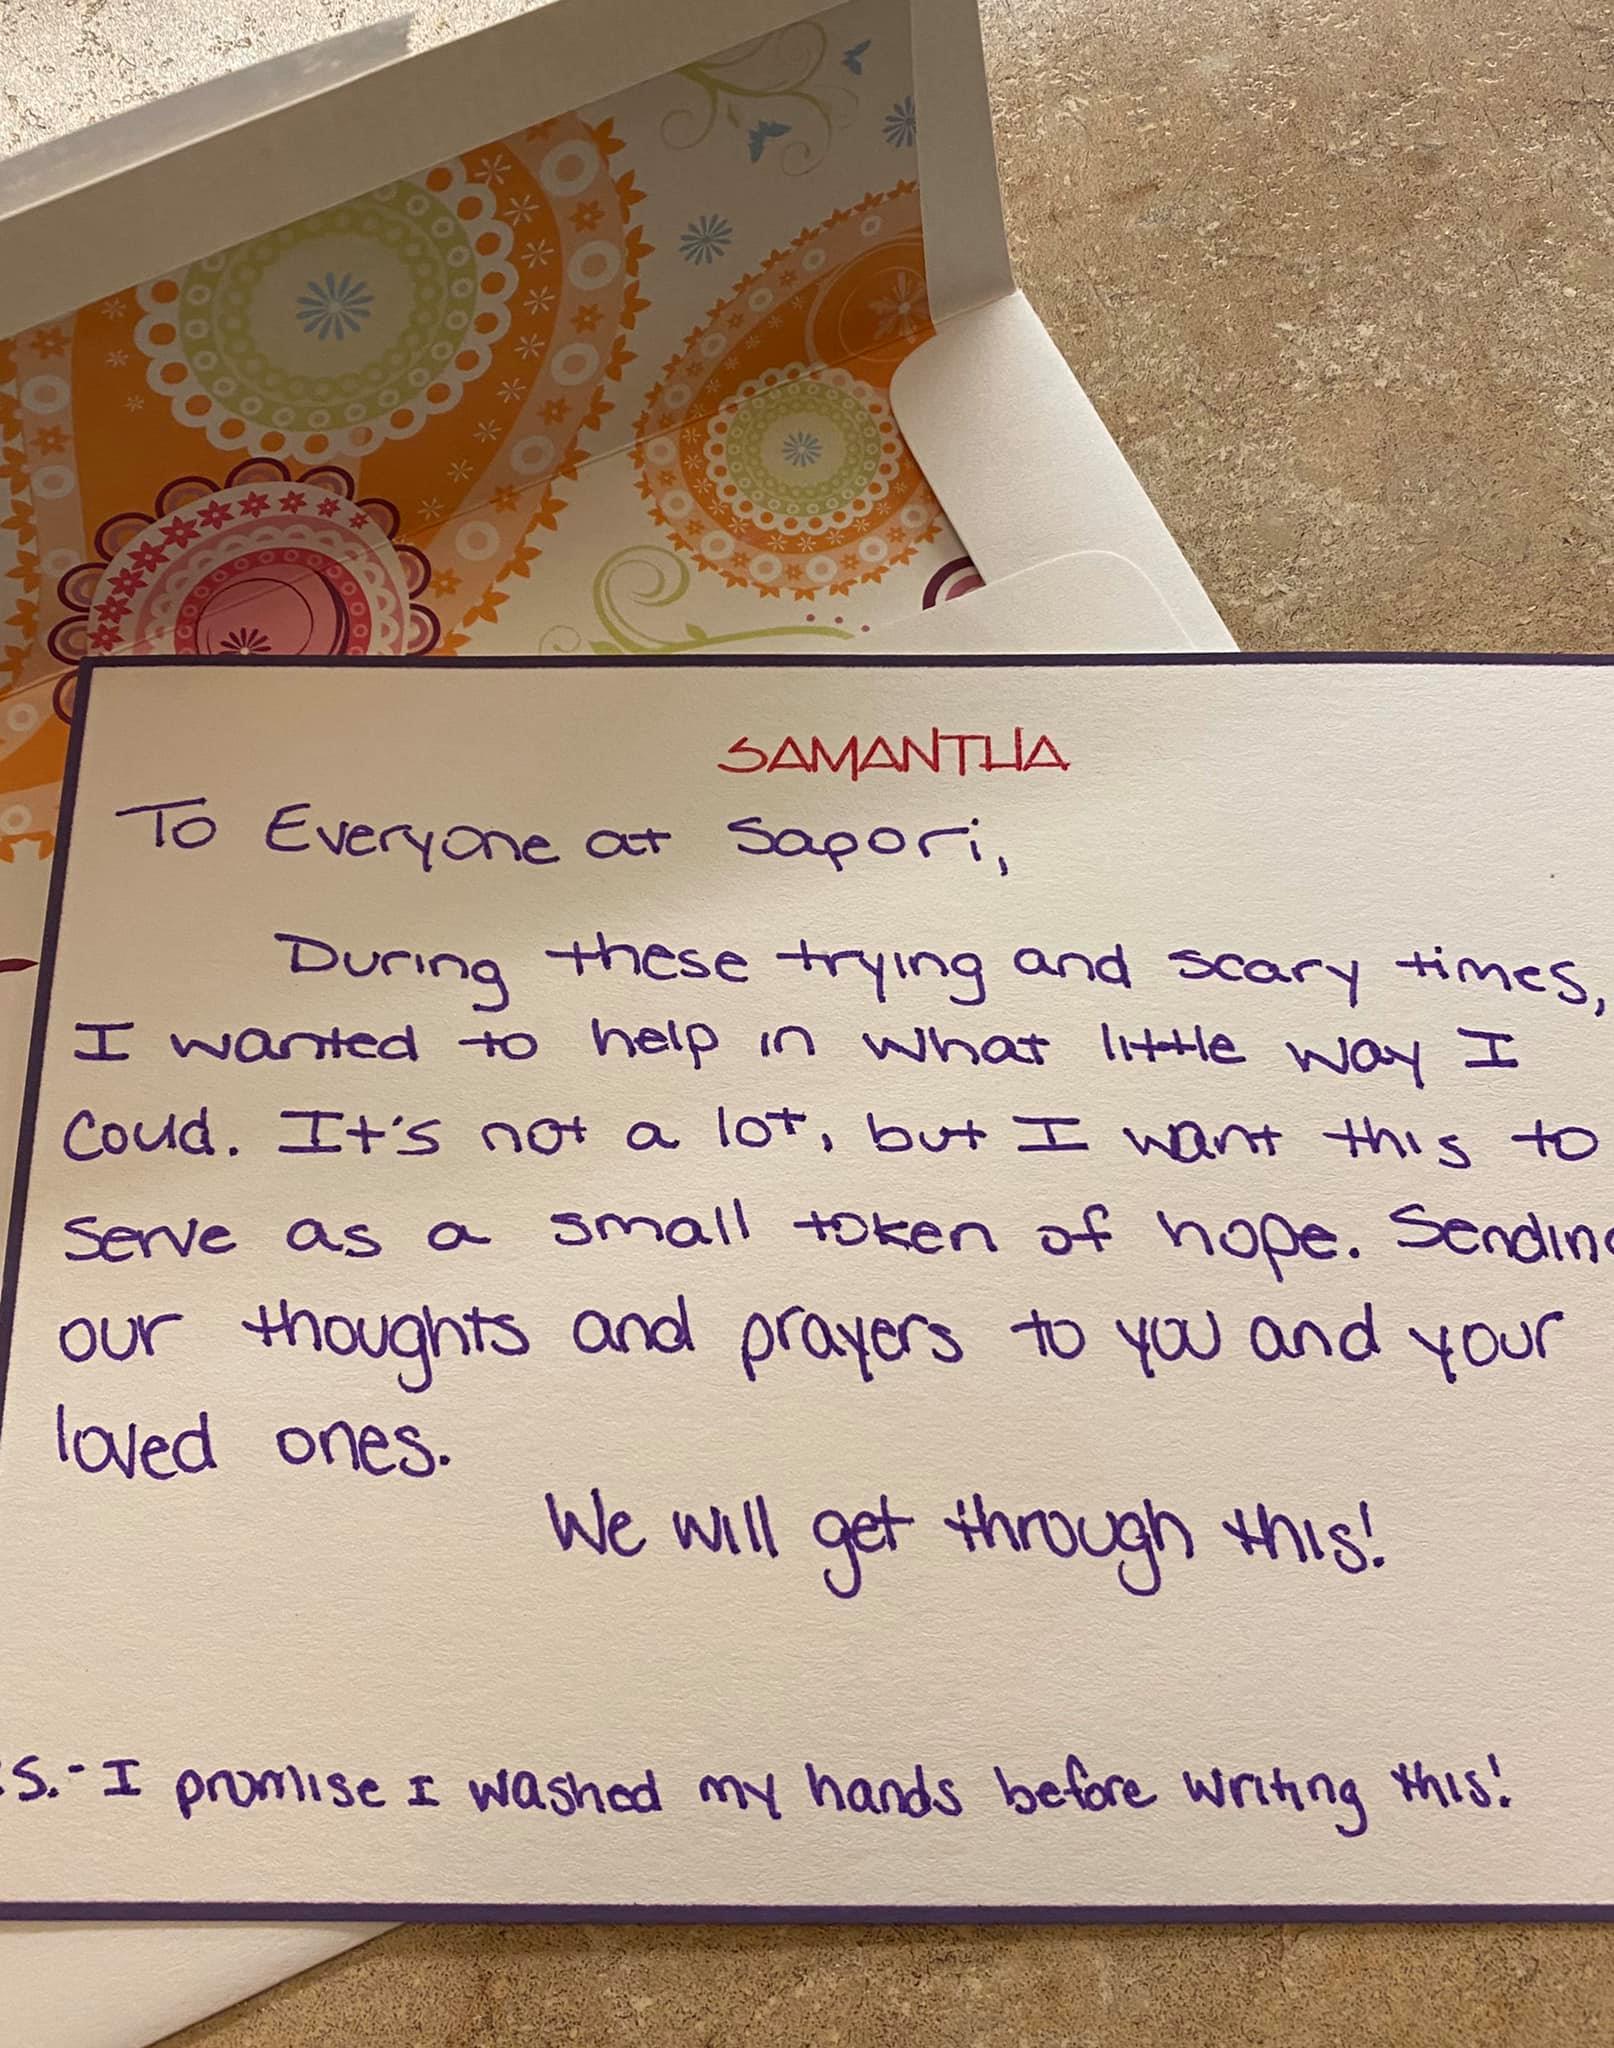 SAMANTHA
To Everyone at Sapori,
During these trying and scary times,
I wanted to help in what little way I
could. It's not a lot, but I want this to
serve as a small token of hope. Sending
our thoughts and prayers to you and your
loved ones.
We will get through this!
.S. - I promise I washed my hands before writing this!